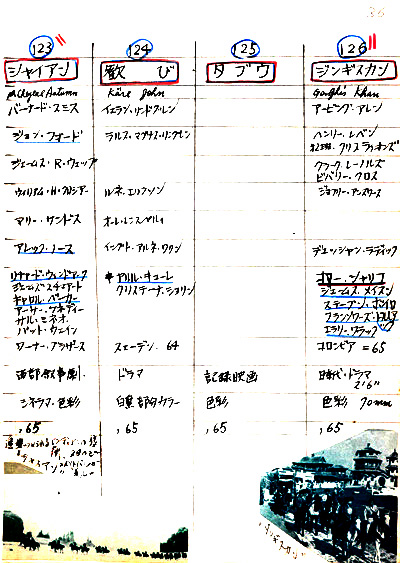 36
123
シャイアン
Cheyenne Autumn
バーナード・スミス
ジョン・フォード
ジェームス・R・ウェッブ
ウィリアム・H・クロジアー
マリー・サンドス
アレックノース
リチャード・ウィドマーク
ジェームズスチュアート
キャロル・ベーカー
アーサー・ケネディー
サル・ミネオ
パット・ウェイン
ワーナー・ブラザース
西部叙事劇
シネラマ・色彩
,65
124
歓び
Käre John
ラルス・マグヌス・リンドグレン
ルネ・エリクソン
ヤルル・キューレ
クリスチーナ・ショリン
スェーデン 64
ドラマ
白黒部分カラー
,65
125
タブウ
記録映画
色彩
,65
126
ジンギスカン
Genghis Khan
アービング・アレン
ヘンリー・レベン
クラーク・レーノルズ
ビバリー・クロス
ジョフリー・アンスワース
デュッシャン・ラディック
オマー・シャリフ
ジェームズ・メイスン
ステーブン・ボイド
フランソワーズ・ドルレアック
エラリー・ワラック
コロンビア =65
時代・ドラマ
2'6"
色彩 70mm
,65